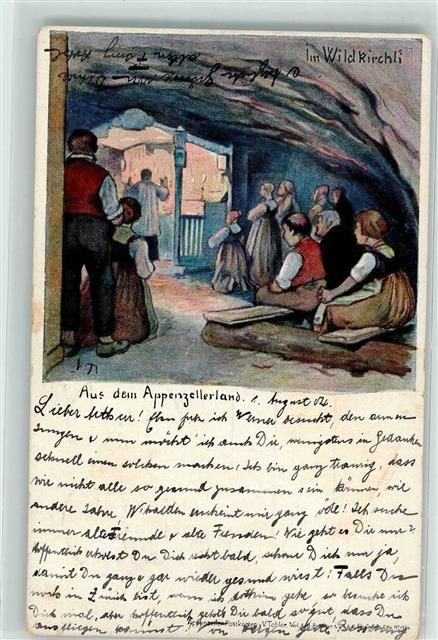 Im Wildkirchli
Aus dem Appenzellerland. 1. August 04.
Lieber Arthur! Eben hab ich Werner besucht, den armen
Jungen & nun möcht' ich auch Die, wenigstens in Gedanken
schnell einen solchen machen! Ich bin ganz traurig, dass
wir nicht alle so gesund zusammen sein können, wie
andere Jahre. Wihalden erscheint mir ganz öde! Ich suche
immer alte Freunde & alte Freuden! Wie geht es Die nur?
Hoffentlich erholst Du Dich recht bald, schone Dich nur ja
damit Du ganz & gar wieder gesund wirst! Falls Du
noch in Zürich bist, wenn ich dahin gehe, so besuche ich
Dich mal, aber hoffentlich geht's Die bald so gut dass Du
ausfliegen kannst! gute Besserung